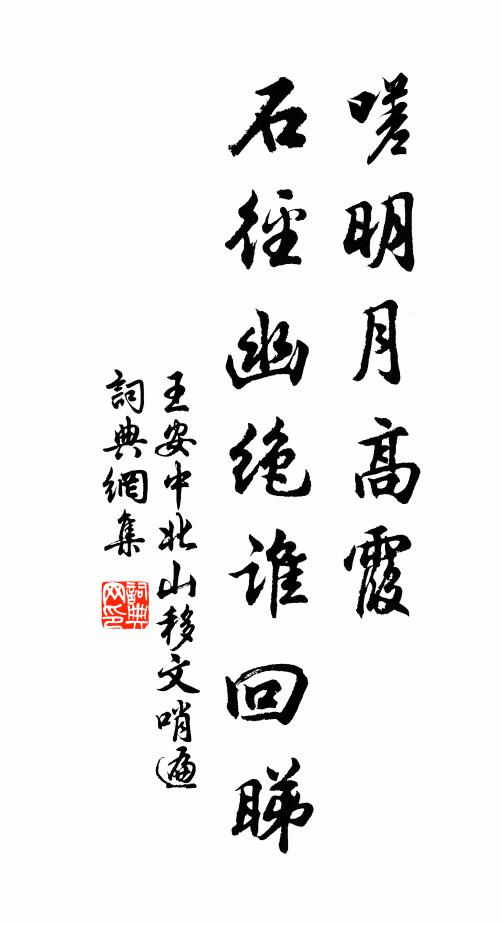 嗟明月高霞
石徑幽绝誰回睇
王安中北山移文哨遍
詞典網集
詞典
网印